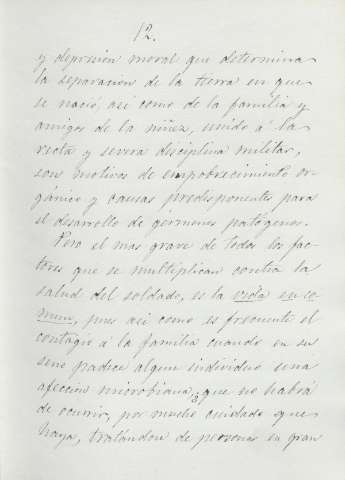 12.
y depresion moral que determina
la separacion de la tierra en que
se nació, asi como de la familia y
amigos de la niñez, unido á la
recta y severa disciplina militar,
son motivos de empobrecimiento or-
gánico y causas predisponentes para
el desarrollo de gérmenes patógenos.
Pero el mas grave de todos los fac-
tores que se multiplican contra la
salud del soldado, es la vida en co-
mun, pues asi como es frecuente el
contagio á la familia cuando en su
seno padece algun individuo una
afeccion microbiana, ¿que no habrá
de ocurrir, por mucho cuidado que
haya, tratándose de personas en gran